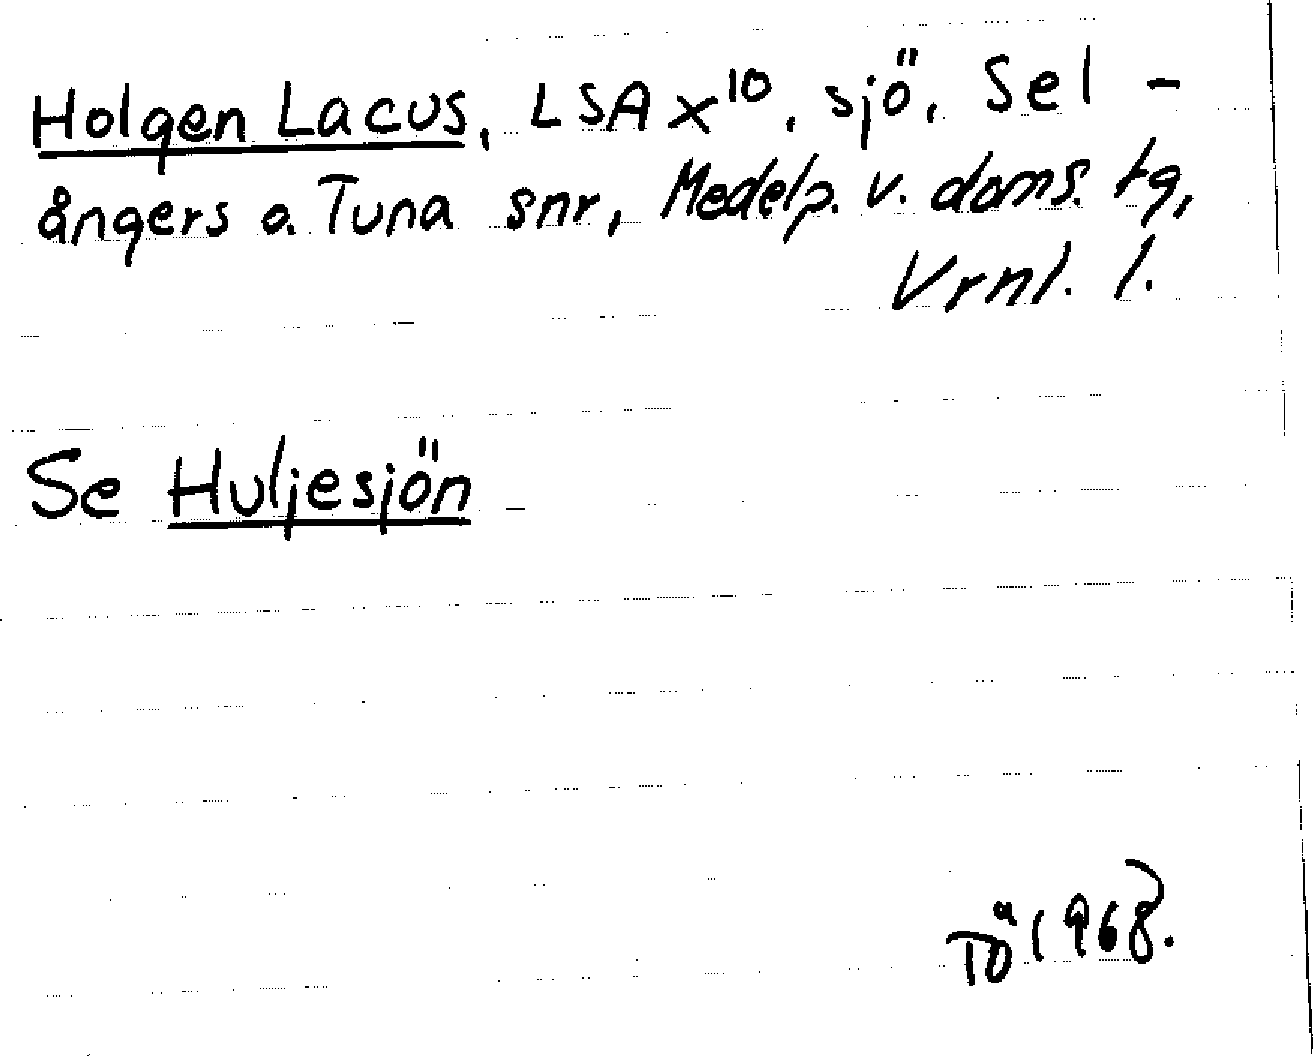 Holgen Lacus, LSA x¹⁰, sjö, Sel-
ångers o. Tuna snr, Medelp. v. doms. tg,
Vrnl. l.
Se Huljesjön
Tö 1968.